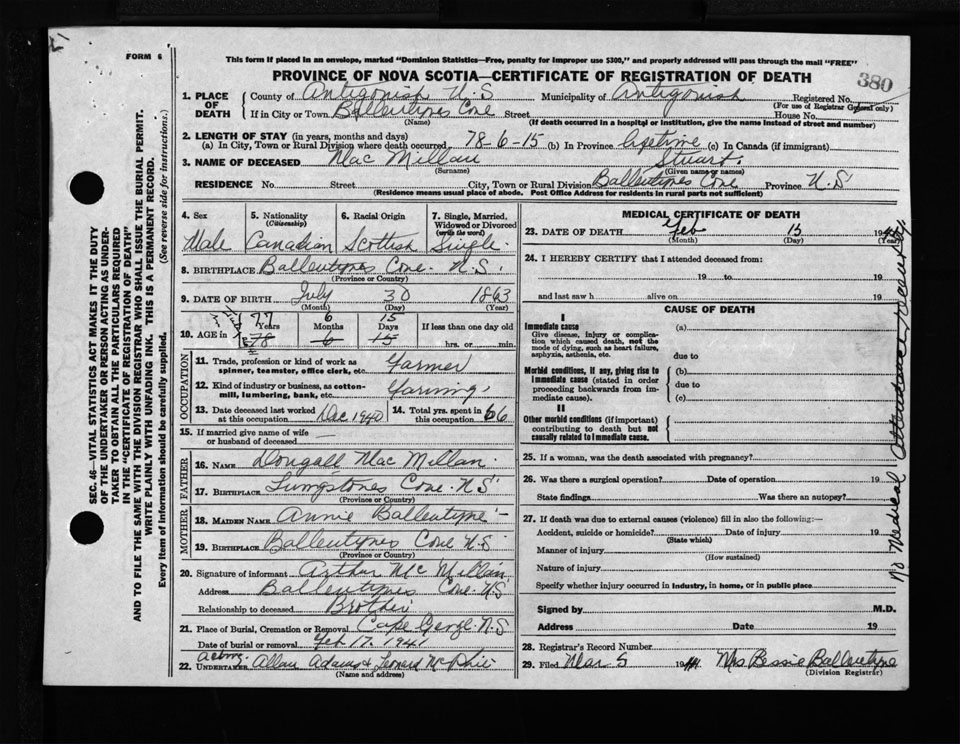 FORM 6
This form if placed in an envelope, marked "Dominion Statistics—Free, penalty for improper use $300," and properly addressed will pass through the mail "FREE"
PROVINCE OF NOVA SCOTIA—CERTIFICATE OF REGISTRATION OF DEATH
380
1. PLACE OF DEATH County of Antigonish N.S Municipality of Antigonish Registered No.
(For use of Registrar General only)
If in City or Town Ballentynes Cove Street House No.
(Name) (If death occurred in a hospital or institution, give the name instead of street and number)
2. LENGTH OF STAY (in years, months and days)
(a) In City, Town or Rural Division where death occurred 78-6-15 (b) In Province lifetime (c) In Canada (if immigrant)
3. NAME OF DECEASED Mac Millan Stuart
(Surname) (Given name or names)
RESIDENCE No. Street City, Town or Rural Division Ballentynes Cove Province N.S
(Residence means usual place of abode. Post Office Address for residents in rural parts not sufficient)
4. Sex 5. Nationality (Citizenship) 6. Racial Origin 7. Single, Married, Widowed or Divorced (write the word)
Male Canadian Scottish Single
8. BIRTHPLACE Ballentynes Cove. N.S.
(Province or Country)
9. DATE OF BIRTH July 30 1863
(Month) (Day) (Year)
77 6 15
10. AGE in Years Months Days If less than one day old
78 6 15 hrs. or min.
OCCUPATION
11. Trade, profession or kind of work as spinner, teamster, office clerk, etc. Farmer
12. Kind of industry or business, as cotton-mill, lumbering, bank, etc. Farming
13. Date deceased last worked at this occupation Dec 1940 14. Total yrs. spent in this occupation 66
15. If married give name of wife or husband of deceased —
FATHER
16. NAME Dougall Mac Millan
17. BIRTHPLACE Cove. N.S
(Province or Country)
MOTHER
18. MAIDEN NAME Annie Ballentyne
19. BIRTHPLACE Ballentynes Cove N.S
(Province or Country)
20. Signature of informant Arthur Mc Millan
Address Ballentynes Cove. N.S
Relationship to deceased Brother
21. Place of Burial, Cremation or Removal Cape George N.S
Date of burial or removal Feb 17. 1941
acting
22. UNDERTAKER Allan Adams & Leonard McPhie
(Name and address)
MEDICAL CERTIFICATE OF DEATH
23. DATE OF DEATH Feb 15 19
(Month) (Day) (Year)
24. I HEREBY CERTIFY that I attended deceased from:
19 to 19
and last saw h alive on 19
CAUSE OF DEATH
I
Immediate cause (a)
Give disease, injury or complication which caused death, not the mode of dying, such as heart failure, asphyxia, asthenia, etc. due to
Morbid conditions, if any, giving rise to immediate cause (stated in order proceeding backwards from immediate cause). (b)
due to
(c)
II
Other morbid conditions (if important) contributing to death but not causally related to immediate cause.
25. If a woman, was the death associated with pregnancy?
26. Was there a surgical operation? Date of operation 19
State findings Was there an autopsy?
27. If death was due to external causes (violence) fill in also the following:—
Accident, suicide or homicide? Date of injury 19
(State which)
Manner of injury
(How sustained)
Nature of injury
Specify whether injury occurred in industry, in home, or in public place
Signed by M.D.
Address Date 19
28. Registrar's Record Number
29. Filed Mar 5 1941 Mrs Bessie Ballentyne
(Division Registrar)
No Medical attendance
SEC. 46—VITAL STATISTICS ACT MAKES IT THE DUTY
OF THE UNDERTAKER OR PERSON ACTING AS UNDER-
TAKER TO OBTAIN ALL THE PARTICULARS REQUIRED
IN THE "CERTIFICATE OF REGISTRATION OF DEATH"
AND TO FILE THE SAME WITH THE DIVISION REGISTRAR WHO SHALL ISSUE THE BURIAL PERMIT.
WRITE PLAINLY WITH UNFADING INK. THIS IS A PERMANENT RECORD.
Every item of information should be carefully supplied. (See reverse side for instructions.)